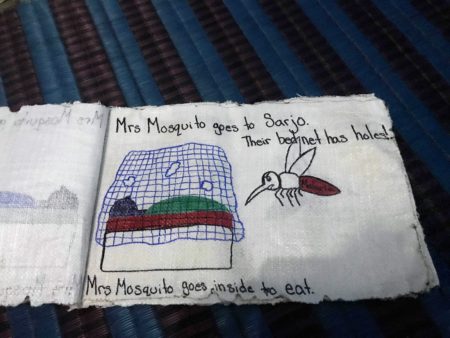 Mrs Mosquito goes to Sarjo.
Their bednet has holes!
Mrs Mosquito goes inside to eat.